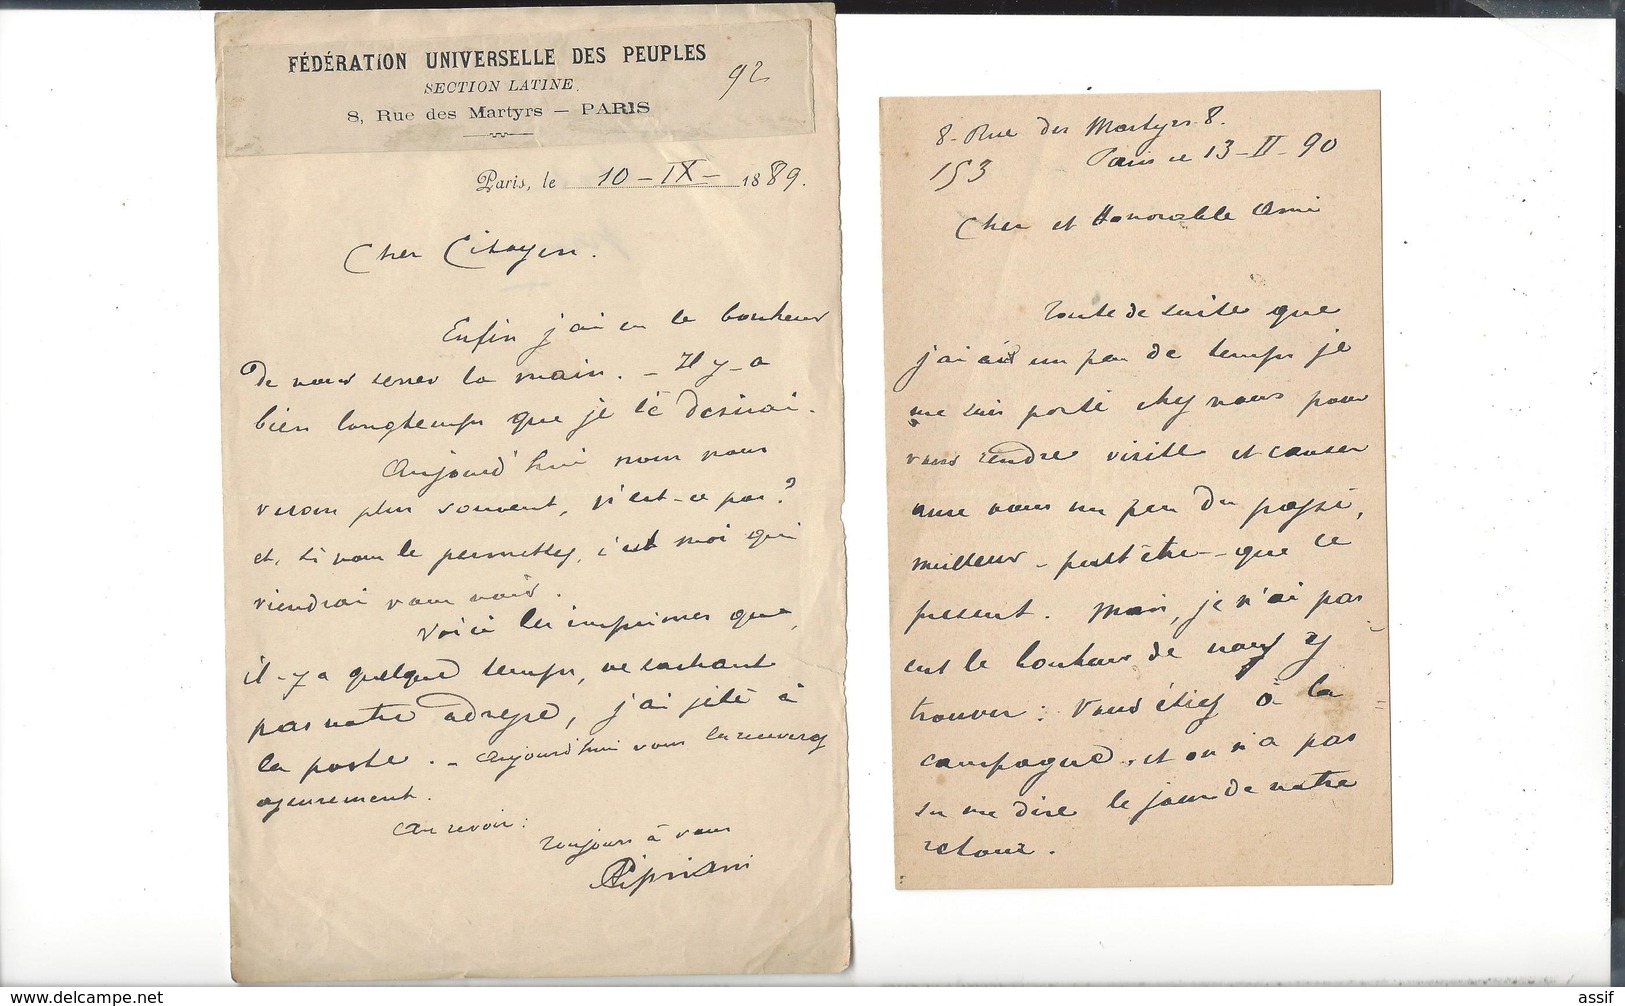 FÉDÉRATION UNIVERSELLE DES PEUPLES
SECTION LATINE.
8, Rue des Martyrs — PARIS
92
Paris, le 10 – IX – 1889.
Cher Citoyen.
Enfin j'ai eu le bonheur
de vous serrer la main. – Il y – a
bien longtemps que je le desirai.
Aujourd'hui nous nous
verons plus souvent, n'est-ce pas?
et, si vous le permettez, c'est moi qui
viendrai vous voir.
Voici les imprimes que,
il – y a quelque temps, ne sachant
pas votre adresse, j'ai jeté à
la poste. – Aujourd'hui vous les
Au revoir:
toujours à vous
ACipriani
8 – Rue des Martyrs 8.
153 Paris le 13 – II – 90
Cher et Honorable Ami
Toute de suite que
j'ai eu un peu de temps je
me suis porté chez vous pour
vous rendre visite et causer
avec vous un peu du passé,
meilleur – peut être – que le
present. Mais, je n'ai pas
eut le bonheur de vous y
trouver: Vous étiez à la
campagne, et on n'a pas
su me dire le jour de votre
retour.
assif